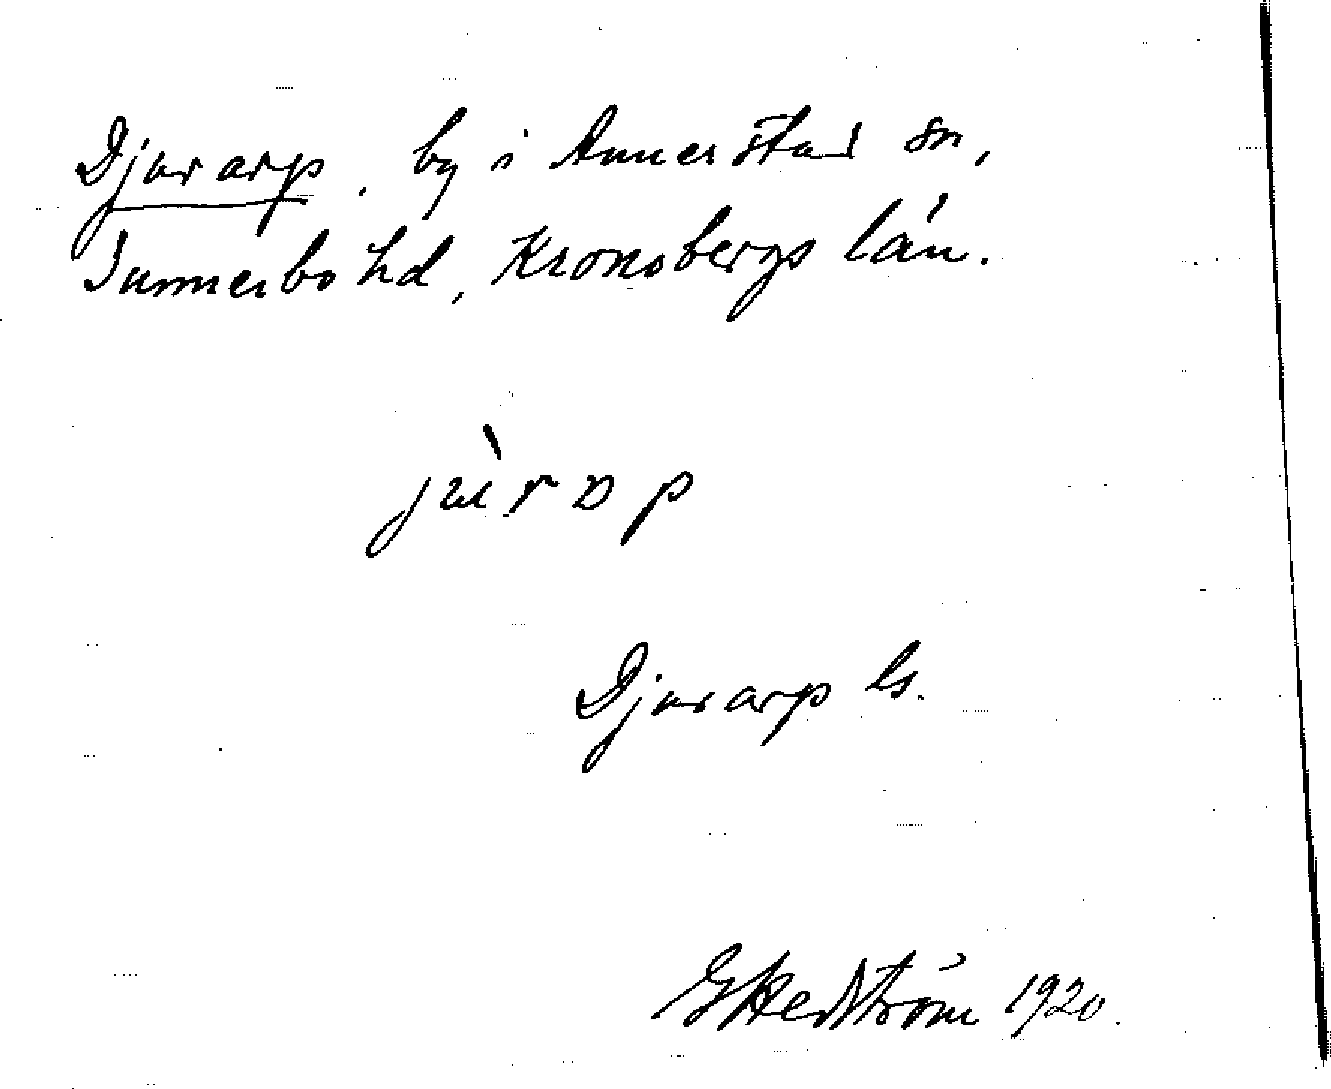 Djurarp, by i Annerstad sn,
Sunnerbo hd, Kronobergs län.
jùrap
Djurarp ls.
G Hedström 1920.